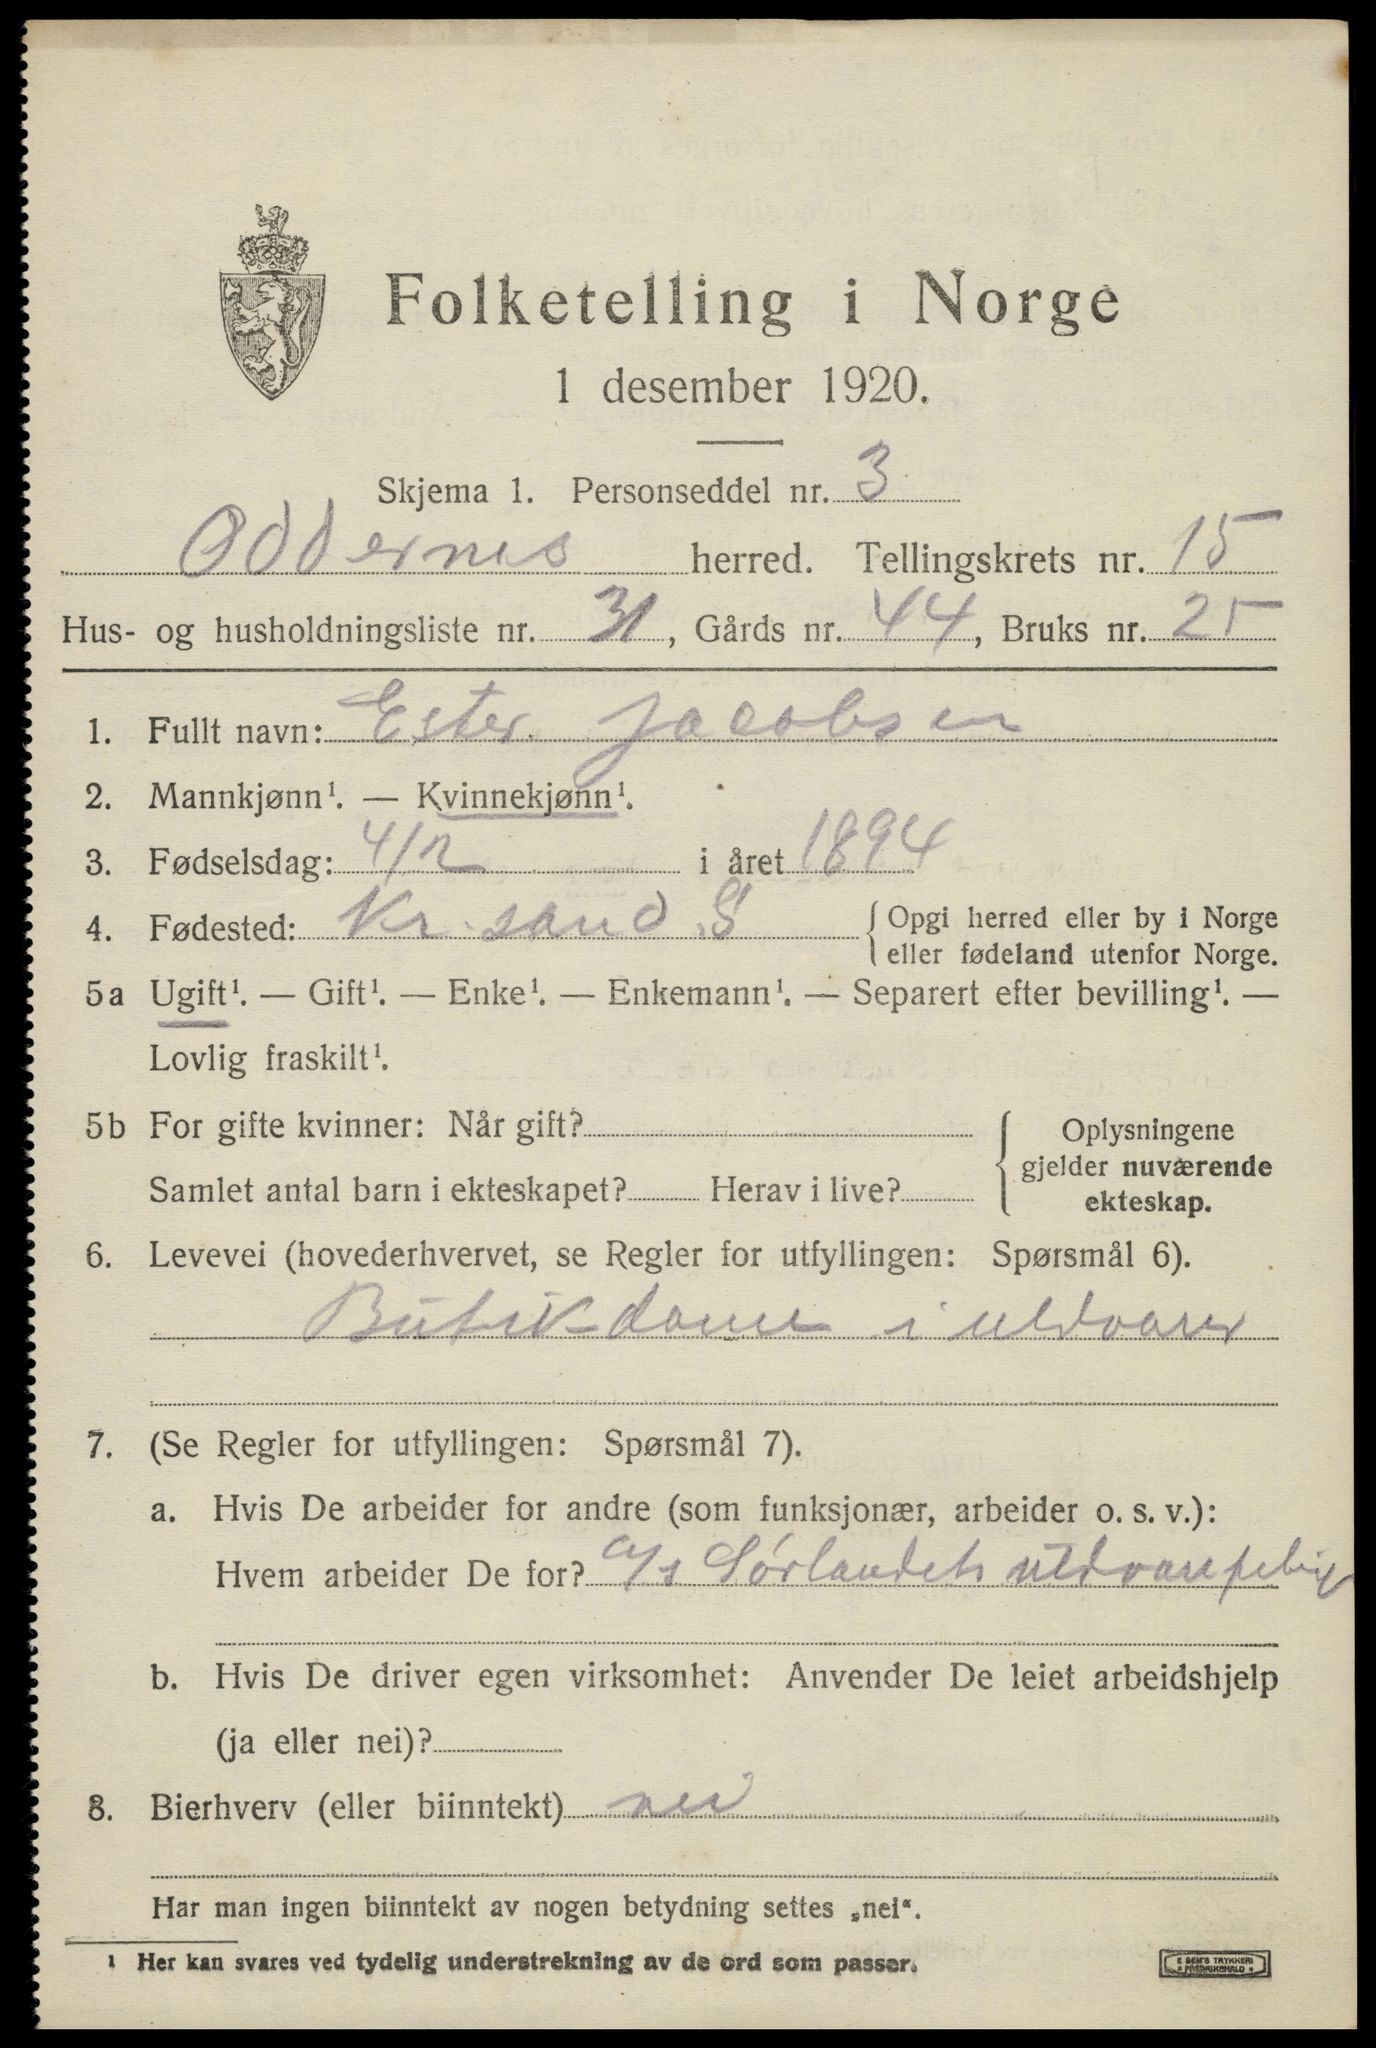 Folketelling i Norge
1 desember 1920.
Skjema 1. Personseddel nr. 3
Oddernes herred. Tellingskrets nr. 15
Hus- og husholdningsliste nr. 31, Gårds nr. 44, Bruks nr. 25
1. Fullt navn: Ester Jacobsen
2. Mannkjønn¹. — Kvinnekjønn¹.
3. Fødselsdag: 4/2 i året 1894
4. Fødested: Kr.sand S { Opgi herred eller by i Norge
eller fødeland utenfor Norge.
5a Ugift¹. — Gift¹. — Enke¹. — Enkemann¹. — Separert efter bevilling¹. —
Lovlig fraskilt¹.
5b For gifte kvinner: Når gift?
Samlet antal barn i ekteskapet? Herav i live?
Oplysningene
gjelder nuværende
ekteskap.
6. Levevei (hovederhvervet, se Regler for utfyllingen: Spørsmål 6).
Butikdame i uldvarer
7. (Se Regler for utfyllingen: Spørsmål 7).
a. Hvis De arbeider for andre (som funksjonær, arbeider o. s. v.):
Hvem arbeider De for? a/s Sørlandets uldvare
b. Hvis De driver egen virksomhet: Anvender De leiet arbeidshjelp
(ja eller nei)?
8. Bierhverv (eller biinntekt) nei
Har man ingen biinntekt av nogen betydning settes „nei“.
¹ Her kan svares ved tydelig understrekning av de ord som passer.
E SEM'S TRYKKERI
FREDRIKSHALD